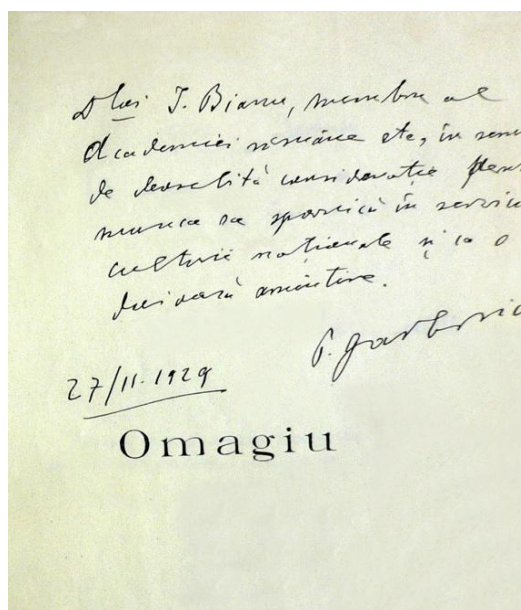 Dlui I. Bianu, membru al
Academiei române etc, în semn
de deosebită considerație pentr
munca sa spornică în serviciu
culturii naționale și ca o
duioasă amintire.
G. Garbovic
27/II.1929
Omagiu